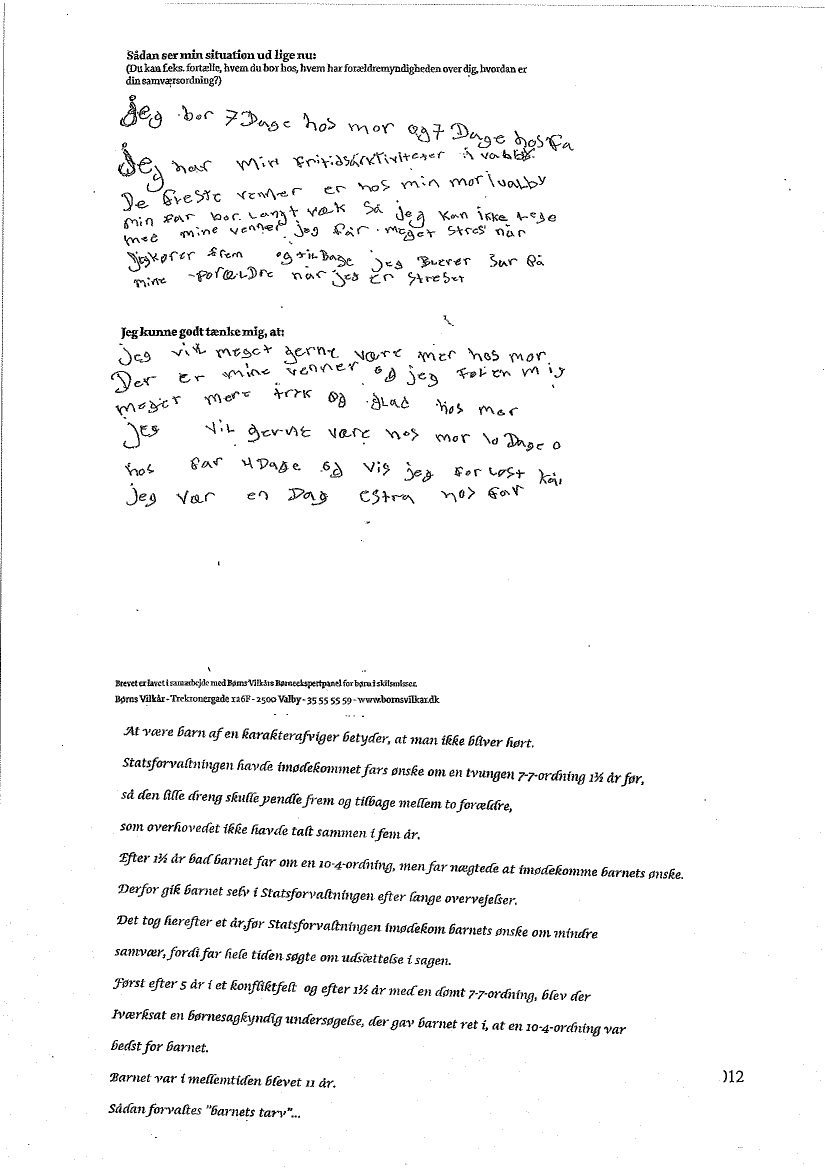 Sådan ser min situation ud lige nu:
(Du kan f.eks. fortælle, hvem du bor hos, hvem har forældremyndigheden over dig, hvordan er
din samværsordning?)
Jeg bor 7 Dage hos mor og 7 Dage hos Fa
Jeg har min fritidsarktiviteser i valby.
De fleste venner er hos min mor i valby
min far bor langt væk så jeg kan ikke lege
med mine venner jeg får meget stres når
jegkører frem og til Dage jeg Bliver sur på
mine forælDre når jeg Er stresset
Jeg kunne godt tænke mig, at:
jeg vil meget gerne være mer hos mor.
Der er mine venner og jeg føler mig
meget mere tryk og glad hos mor
jeg vil gerne være hos mor 10 Dage o
hos far 4 Dage og vis jeg for løst kan
jeg vær en Dag estra hos far
Brevet er lavet i samarbejde med Børns Vilkårs Børneekspertpanel for børn i skilsmisser.
Børns Vilkår - Trekronergade 126F - 2500 Valby - 35 55 55 59 - www.bornsvilkar.dk
At være barn af en karakterafviger betyder, at man ikke bliver hørt.
Statsforvaltningen havde imødekommet fars ønske om en tvungen 7-7-ordning 1½ år før,
så den lille dreng skulle pendle frem og tilbage mellem to forældre,
som overhovedet ikke havde talt sammen i fem år.
Efter 1½ år bad barnet far om en 10-4-ordning, men far nægtede at imødekomme barnets ønske.
Derfor gik barnet selv i Statsforvaltningen efter lange overvejelser.
Det tog herefter et år,før Statsforvaltningen imødekom barnets ønske om mindre
samvær, fordi far hele tiden søgte om udsættelse i sagen.
Først efter 5 år i et konfliktfelt og efter 1½ år med en dømt 7-7-ordning, blev der
Iværksat en børnesagkyndig undersøgelse, der gav barnet ret i, at en 10-4-ordning var
bedst for barnet.
Barnet var i mellemtiden blevet 11 år.
)12
Sådan forvaltes "barnets tarv"...